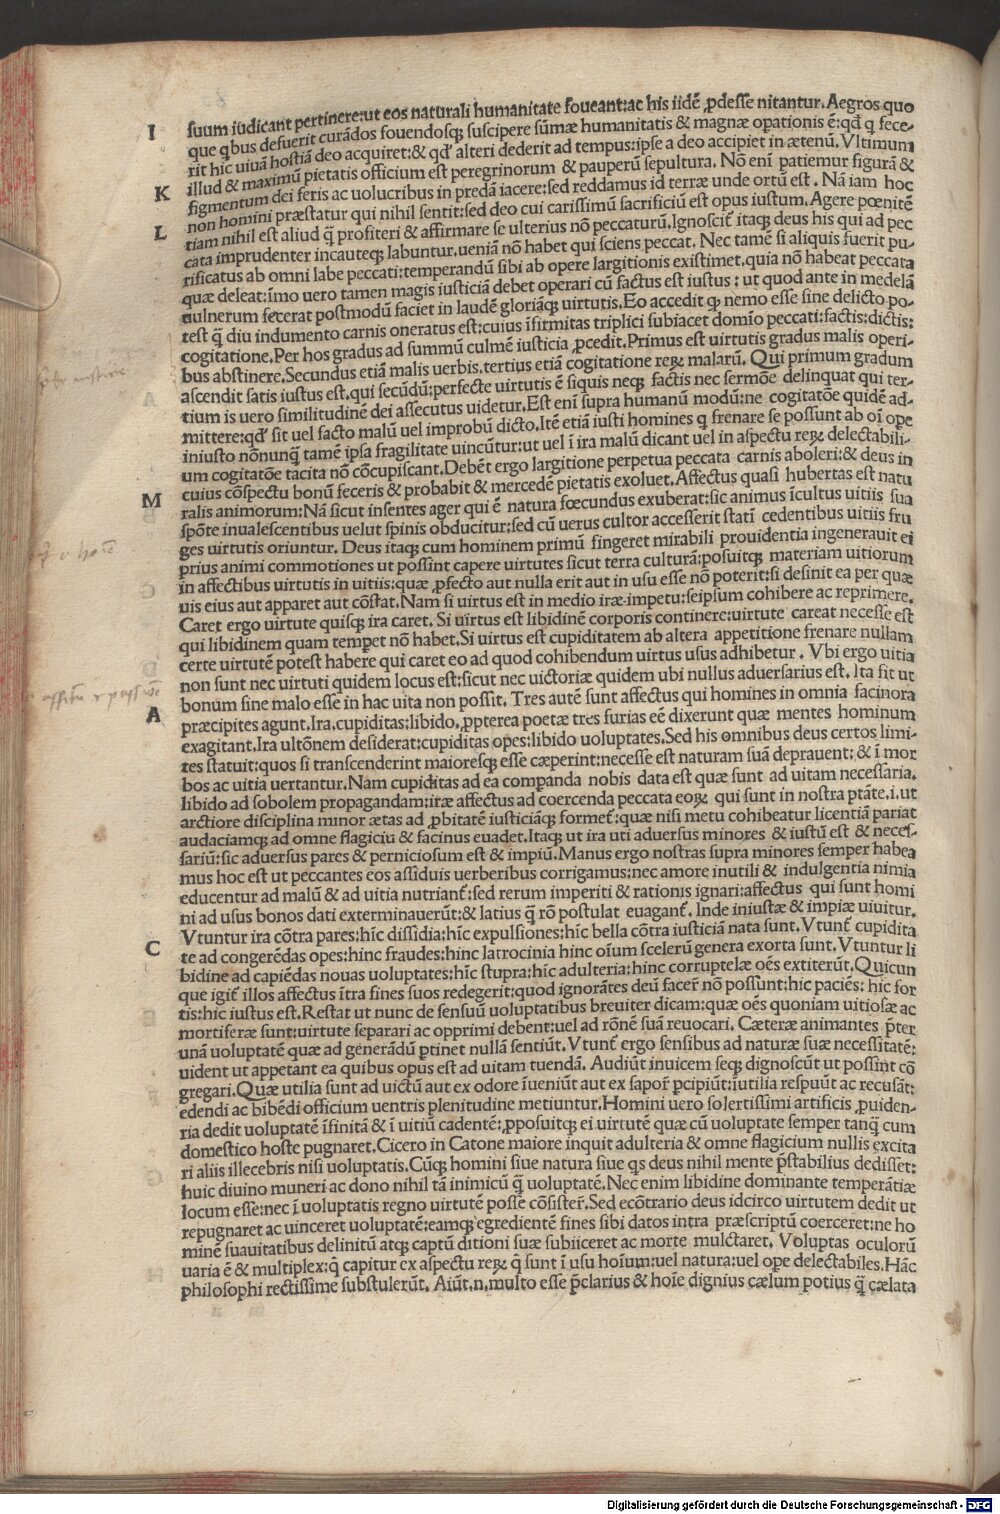 suum iudicant pertinere:ut eos naturali humanitate foueant:ac his iidē ꝓdesse nitantur. Aegros quo
I que ꝗbus defuerit curādos fouendosqꝫ suscipere sūmæ humanitatis & magnæ oꝑationis ē:qđ ꝗ fece-
rit hic uiuā hostiā deo acquiret:& qđ alteri dederit ad tempus:ipse a deo accipiet in ætenū. Vltimum
illud & maximū pietatis officium est peregrinorum & pauperū sepultura. Nō enī patiemur figurā &
K figmentum dei feris ac uolucribus in predā iacere:sed reddamus id terræ unde ortū est. Nā iam hoc
non homini præstatur qui nihil sentit:sed deo cui carissimū sacrificiū est opus iustum. Agere pœnitē
L tiam nihil est aliud q̄ profiteri & affirmare se ulterius nō peccaturū. Ignoscit itaqꝫ deus his qui ad pec
cata imprudenter incauteqꝫ labuntur. ueniā nō habet qui sciens peccat. Nec tamē si aliquis fuerit pu-
rificatus ab omni labe peccati:temperandū sibi ab opere largitionis existimet. quia nō habeat peccata
quæ deleat:īmo uero tamen magis iusticiā debet operari cū factus est iustus: ut quod ante in medelā
uulnerum fecerat postmodū faciet in laudē gloriāqꝫ uirtutis. Eo accedit ꝙ nemo esse sine delicto po-
test q̄ diu indumento carnis oneratus est:cuius īfirmitas triplici subiacet domīo peccati:factis:dictis:
cogitatione. Per hos gradus ad summū culmē iusticia ꝓcedit. Primus est uirtutis gradus malis operi-
bus abstinere. Secundus etiā malis uerbis. tertius etiā cogitatione reꝝ malarū. Qui primum gradum
ascendit satis iustus est. qui secūdū:perfecte uirtutis ē siquis neqꝫ factis nec sermōe delinquat qui ter-
tium is uero similitudinē dei assecutus uidetur. Est enī supra humanū modū:ne cogitatōe quidē ad-
mittere:qđ sit uel facto malū uel improbū dicto. Itē etiā iusti homines ꝗ frenare se possunt ab oī ope
iniusto nōnunq̄ tamē ipsa fragilitate uincūtur:ut uel ī ira malū dicant uel in aspectu reꝝ delectabili-
um cogitatōe tacita nō cōcupiscant. Debēt ergo largitione perpetua peccata carnis aboleri:& deus in
cuius cōspectu bonū feceris & probabit & mercedē pietatis exoluet. Affectus quasi hubertas est natu
M ralis animorum:Nā sicut in sentes ager qui ē natura fœcundus exuberat:sic animus īcultus uitiis sua
spōte inualescentibus uelut spinis obducitur:sed cū uerus cultor accesserit statī cedentibus uitiis fru
ges uirtutis oriuntur. Deus itaqꝫ cum hominem primū fingeret mirabili prouidentia ingenerauit ei
prius animi commotiones ut possint capere uirtutes sicut terra culturā:posuitqꝫ materiam uitiorum
in affectibus uirtutis in uitiis:quæ ꝓfecto aut nulla erit aut in usu esse nō poterit:si desinit ea per quæ
uis eius aut apparet aut cōstat. Nam si uirtus est in medio iræ impetu:seipsum cohibere ac reprimere.
Caret ergo uirtute quisqꝫ ira caret. Si uirtus est libidinē corporis continere:uirtute careat necesse est
qui libidinem quam tempet nō habet. Si uirtus est cupiditatem ab altera appetitione frenare nullam
certe uirtutē potest habere qui caret eo ad quod cohibendum uirtus usus adhibetur. Vbi ergo uitia
non sunt nec uirtuti quidem locus est:sicut nec uictoriæ quidem ubi nullus aduersarius est. Ita fit ut
bonum sine malo esse in hac uita non possit. Tres autē sunt affectus qui homines in omnia facinora
A præcipites agunt. Ira. cupiditas:libido. ꝓpterea poetæ tres furias eē dixerunt quæ mentes hominum
exagitant. Ira ultōnem desiderat:cupiditas opes:libido uoluptates. Sed his omnibus deus certos limi-
tes statuit:quos si transcenderint maioresqꝫ esse cæperint:necesse est naturam suā deprauent: & ī mor
bos ac uitia uertantur. Nam cupiditas ad ea comparāda nobis data est quæ sunt ad uitam necessaria.
libido ad sobolem propagandam:iræ affectus ad coercenda peccata eoꝝ qui sunt in nostra ptāte. i. ut
arctiore disciplina minor ætas ad ꝓbitatē iusticiāqꝫ formet̄:quæ nisi metu cohibeatur licentiā pariat
audaciamqꝫ ad omne flagiciū & facinus euadet. Itaqꝫ ut ira uti aduersus minores & iustū est & neces-
sariū:sic aduersus pares & perniciosum est & impiū. Manus ergo nostras supra minores semper habea
mus hoc est ut peccantes eos assiduis uerberibus corrigamus:nec amore inutili & indulgentia nimia
educentur ad malū & ad uitia nutriant̄:sed rerum imperiti & rationis ignari:affectus qui sunt homi
ni ad usus bonos dati exterminauerūt:& latius q̄ rō postulat euagant̄. Inde iniustæ & impiæ uiuitur.
Vtuntur ira cōtra pares:hīc dissidia:hīc expulsiones:hīc bella cōtra iusticiā nata sunt. Vtunt̄ cupidita
C te ad congerēdas opes:hinc fraudes:hinc latrocinia hinc oīum scelerū genera exorta sunt. Vtuntur li
bidine ad capiēdas nouas uoluptates:hīc stupra:hīc adulteria:hinc corruptelæ oēs extiterūt. Quicun
que igit̄ illos affectus ītra fines suos redegerit:quod ignorātes deū facer̄ nō possunt:hic paciēs: hic for
tis:hic iustus est. Restat ut nunc de sensuū uoluptatibus breuiter dicam:quæ oēs quoniam uitiosæ ac
mortiferæ sunt:uirtute separari ac opprimi debent:uel ad rōnē suā reuocari. Cæteræ animantes p̄ter
unā uoluptatē quæ ad generādū ꝑtinet nullā sentiūt. Vtunt̄ ergo sensibus ad naturæ suæ necessitatē:
uident ut appetant ea quibus opus est ad uitam tuendā. Audiūt inuicem seqꝫ dignoscūt ut possint cō
gregari. Quæ utilia sunt ad uictū aut ex odore īueniūt aut ex sapor̄ ꝑcipiūt:īutilia respuūt ac recusāt:
edendi ac bibēdi officium uentris plenitudine metiuntur. Homini uero solertissimi artificis ꝓuiden-
ria dedit uoluptatē īfinitā & ī uitiū cadentē:ꝓposuitqꝫ ei uirtutē quæ cū uoluptate semper tanq̄ cum
domestico hoste pugnaret. Cicero in Catone maiore inquit adulteria & omne flagicium nullis excita
ri aliis illecebris nisi uoluptatis. Cūqꝫ homini siue natura siue ꝗs deus nihil mente p̄stabilius dedisset:
huic diuino muneri ac dono nihil tā inimicū q̄ uoluptatē. Nec enim libidine dominante temperātiæ
locum esse:nec ī uoluptatis regno uirtutē posse cōsister̄. Sed ecōtrario deus idcirco uirtutem dedit ut
repugnaret ac uinceret uoluptatē:eamqꝫ egredientē fines sibi datos intra præscriptū coerceret:ne ho
minē suauitatibus delinitū atqꝫ captū ditioni suæ subiiceret ac morte mulctaret. Voluptas oculorū
uaria ē & multiplex:ꝗ capitur ex aspectu reꝝ q̄ sunt ī usu hoīum:uel natura:uel ope delectabiles. Hāc
philosophi rectissime substulerūt. Aiūt. n. multo esse p̄clarius & hoīe dignius cælum potius q̄ cælata
Digitalisierung gefördert durch die Deutsche Forschungsgemeinschaft - DFG